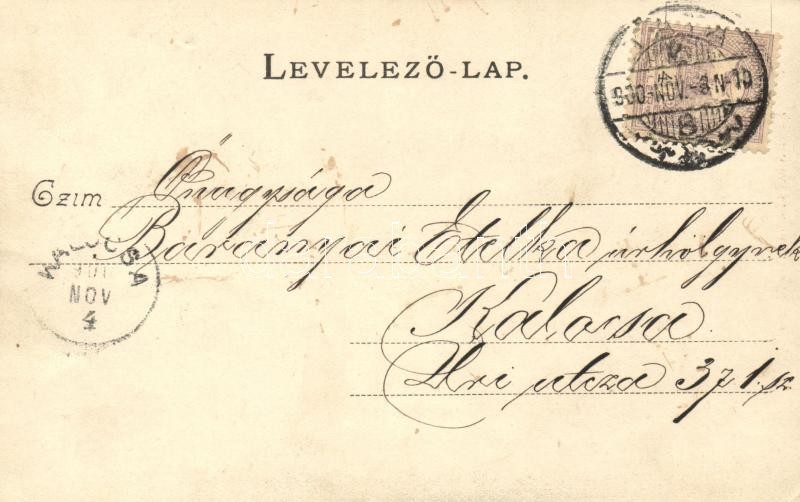 LEVELEZŐ-LAP.
900-NOV.-3 N-10
Czim Őnagysága
Bárányai Etelka úrhölgynek
KALOCSA
NOV
4
Kalocsa
Uri utcza 371. sz